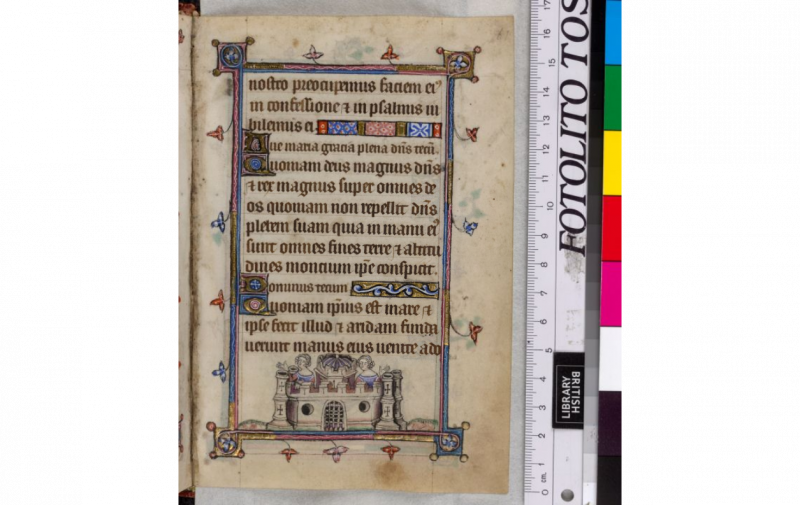 nostro preocupemus faciem ei᷒
in confessione ⁊ in psalmis iu
bilemus ei
Aue maria gracia plena dn̄s tecū.
Quoniam deus magnus dn̄s
⁊ rex magnus super omnes de
os quoniam non repellit dn̄s
plebem suam quia in manu ei᷒
sunt omnes fines terre ⁊ altitu
dines moncium ip̄e conspicit.
Dominus tecum
Quoniam ip̄ius est mare ⁊
ipse fecit illud ⁊ aridam funda
uerunt manus eius uenite ado
FOTOLITO TOS
BRITISH
LIBRARY
0 cm. 1 2 3 4 5 6 7 8 9 10 11 12 13 14 15 16 17